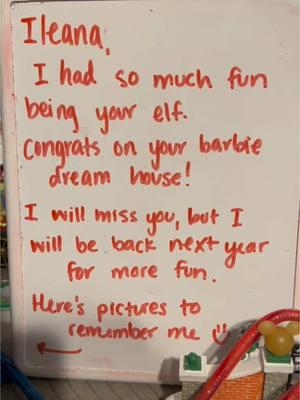 Ileana,
I had so much fun
being your elf.
Congrats on your barbie
dream house!
I will miss you, but I
will be back next year
for more fun.
Here's pictures to
remember me ☺
←